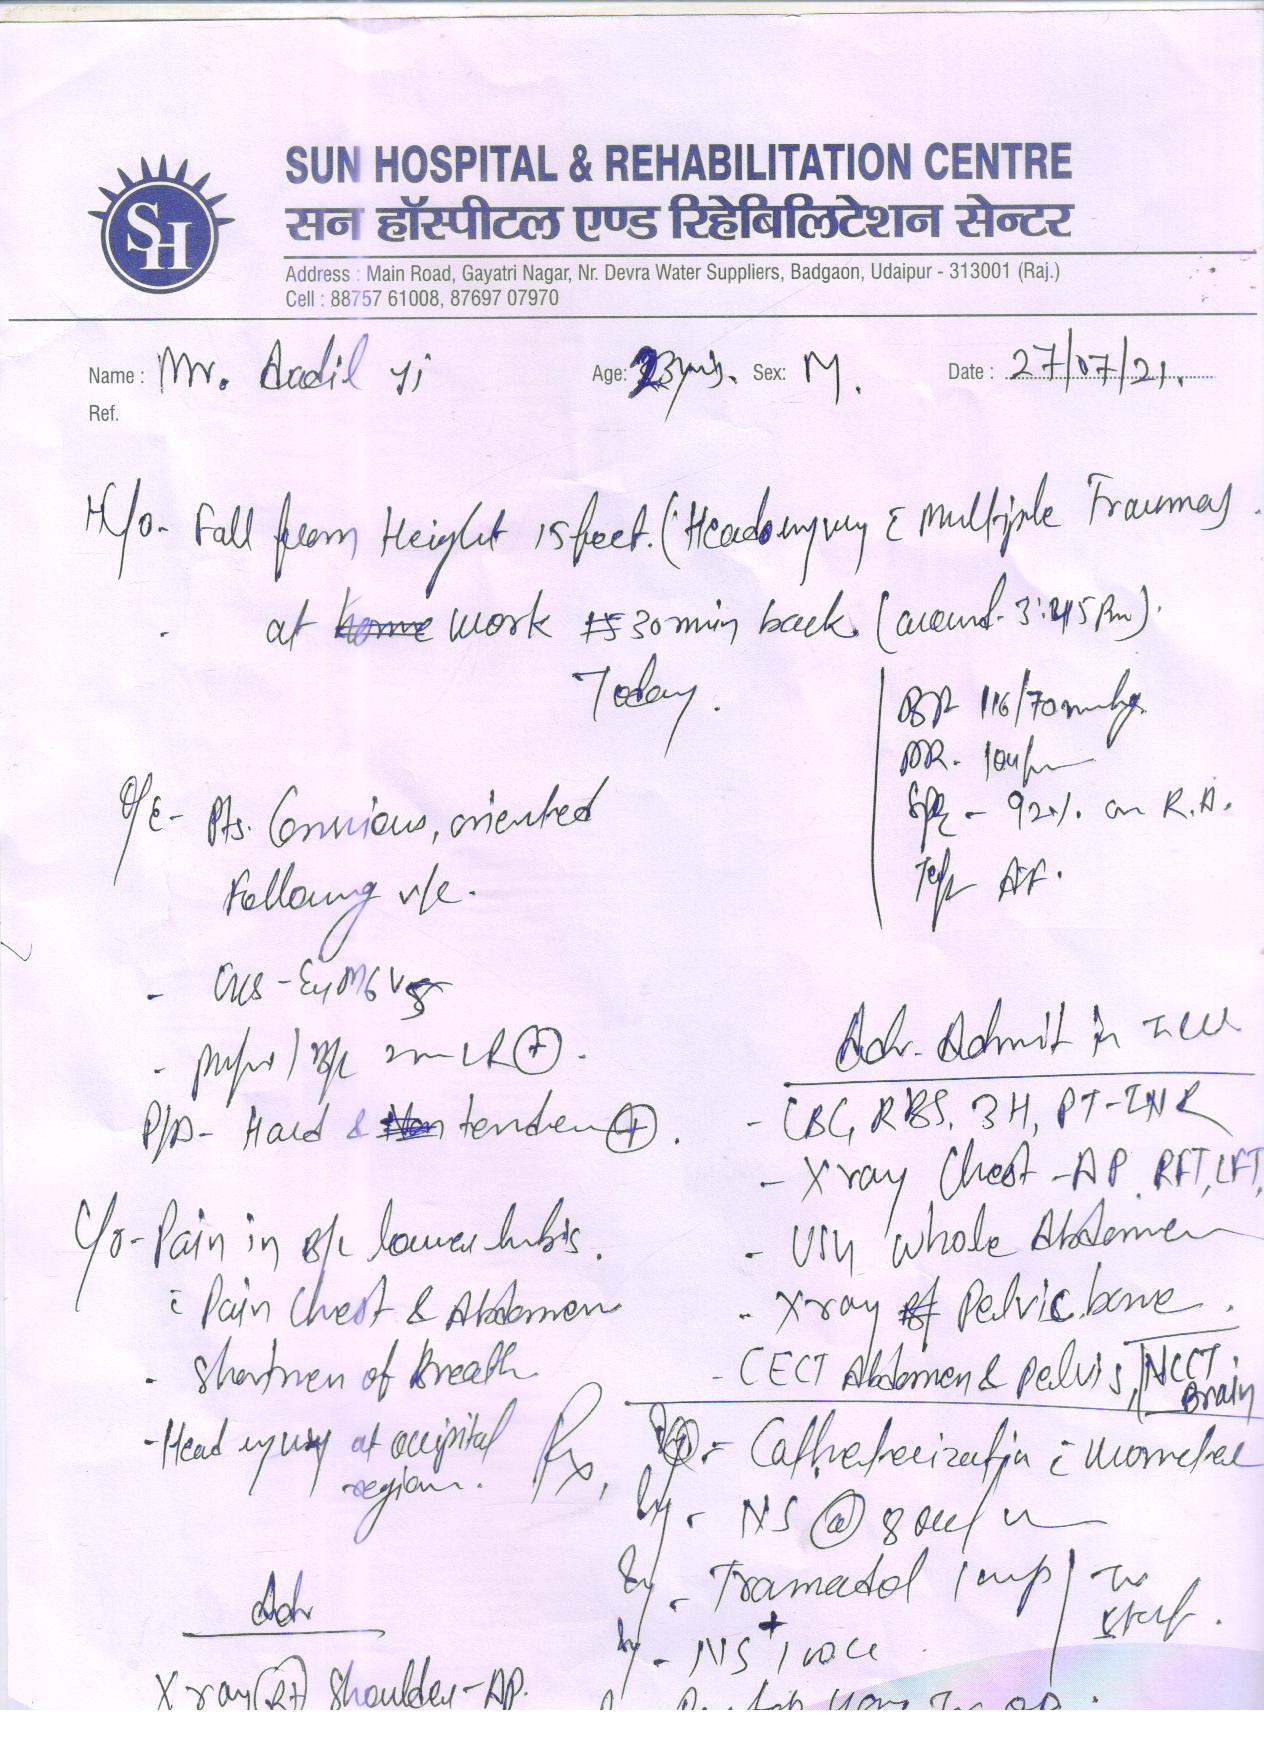 SUN HOSPITAL & REHABILITATION CENTRE
सन हॉस्पीटल एण्ड रिहेबिलिटेशन सेन्टर
SH
Address : Main Road, Gayatri Nagar, Nr. Devra Water Suppliers, Badgaon, Udaipur - 313001 (Raj.)
Cell : 88757 61008, 87697 07970
Name : Mr. Aadil ji Age: 23 yrs. Sex: M. Date : 27/07/21.
Ref.
H/o - Fall from Height 15 feet. (Head injury c̄ Multiple Traumas)
at work 30 min back. (around 3:45 Pm).
Today.
BP 116/70 mmhg
PR - 104/m
SpO2 - 92% on R.A.
Temp AF.
O/E - Pts. Conscious, oriented
Following v/c.
- GCS - E4 M6 V5
- pupil B/L 2mm LR (+).
P/A - Hard & tender (+).
Adv. Admit in ICU
- CBC, RBS, 3H, PT-INR
- Xray Chest - AP, RFT, LFT,
- USG whole Abdomen
- Xray of Pelvic bone.
- CECT Abdomen & Pelvis, NCCT Brain
C/o - Pain in B/L lower limbs.
c̄ Pain Chest & Abdomen
- Shortness of Breath
- Head injury at occipital region.
Rx,
- Catheterization c̄
- NS @
- Tramadol 1 amp
+
- NS 100cc
Adv
Xray (Rt) Shoulder - AP.